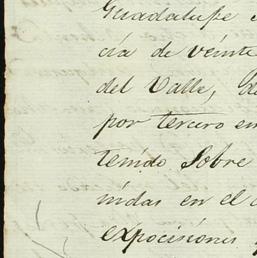 Guadalupe
cia de veinte
del Valle,
por tercero en
tenido Sobre
nidas en el
expocisiones